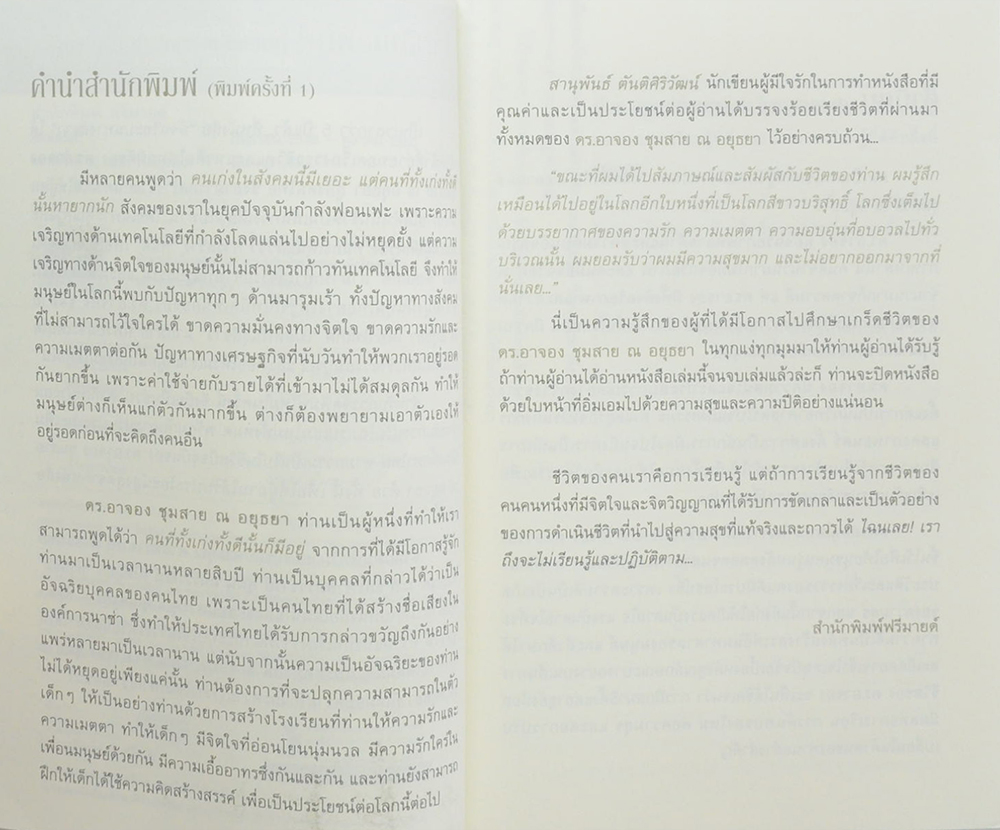 คำนำสำนักพิมพ์ (พิมพ์ครั้งที่ 1)
มีหลายคนพูดว่า คนเก่งในสังคมนี้มีเยอะ แต่คนที่ทั้งเก่งทั้งดี
นั้นหายากนัก สังคมของเราในยุคปัจจุบันกำลังฟอนเฟะ เพราะความ
เจริญทางด้านเทคโนโลยีที่กำลังโลดแล่นไปอย่างไม่หยุดยั้ง แต่ความ
เจริญทางด้านจิตใจของมนุษย์นั้นไม่สามารถก้าวทันเทคโนโลยี จึงทำให้
มนุษย์ในโลกนี้พบกับปัญหาทุกๆ ด้านมารุมเร้า ทั้งปัญหาทางสังคม
ที่ไม่สามารถไว้ใจใครได้ ขาดความมั่นคงทางจิตใจ ขาดความรักและ
ความเมตตาต่อกัน ปัญหาทางเศรษฐกิจที่นับวันทำให้พวกเราอยู่รอด
กันยากขึ้น เพราะค่าใช้จ่ายกับรายได้ที่เข้ามาไม่ได้สมดุลกัน ทำให้
มนุษย์ต่างก็เห็นแก่ตัวกันมากขึ้น ต่างก็ต้องพยายามเอาตัวเองให้
อยู่รอดก่อนที่จะคิดถึงคนอื่น
ดร.อาจอง ชุมสาย ณ อยุธยา ท่านเป็นผู้หนึ่งที่ทำให้เรา
สามารถพูดได้ว่า คนที่ทั้งเก่งทั้งดีนั้นก็มีอยู่ จากการที่ได้มีโอกาสรู้จัก
ท่านมาเป็นเวลานานหลายสิบปี ท่านเป็นบุคคลที่กล่าวได้ว่าเป็น
อัจฉริยบุคคลของคนไทย เพราะเป็นคนไทยที่ได้สร้างชื่อเสียงใน
องค์การนาซ่า ซึ่งทำให้ประเทศไทยได้รับการกล่าวขวัญถึงกันอย่าง
แพร่หลายมาเป็นเวลานาน แต่นับจากนั้นความเป็นอัจฉริยะของท่าน
ไม่ได้หยุดอยู่เพียงแค่นั้น ท่านต้องการที่จะปลุกความสามารถในตัว
เด็กๆ ให้เป็นอย่างท่านด้วยการสร้างโรงเรียนที่ท่านให้ความรักและ
ความเมตตา ทำให้เด็กๆ มีจิตใจที่อ่อนโยนนุ่มนวล มีความรักใคร่ใน
เพื่อนมนุษย์ด้วยกัน มีความเอื้ออาทรซึ่งกันและกัน และท่านยังสามารถ
ฝึกให้เด็กได้ใช้ความคิดสร้างสรรค์ เพื่อเป็นประโยชน์ต่อโลกนี้ต่อไป
สานุพันธ์ ตันติศิริวัฒน์ นักเขียนผู้มีใจรักในการทำหนังสือที่มี
คุณค่าและเป็นประโยชน์ต่อผู้อ่านได้บรรจงร้อยเรียงชีวิตที่ผ่านมา
ทั้งหมดของ ดร.อาจอง ชุมสาย ณ อยุธยา ไว้อย่างครบถ้วน...
"ขณะที่ผมได้ไปสัมภาษณ์และสัมผัสกับชีวิตของท่าน ผมรู้สึก
เหมือนได้ไปอยู่ในโลกอีกใบหนึ่งที่เป็นโลกสีขาวบริสุทธิ์ โลกซึ่งเต็มไป
ด้วยบรรยากาศของความรัก ความเมตตา ความอบอุ่นที่อบอวลไปทั่ว
บริเวณนั้น ผมยอมรับว่าผมมีความสุขมาก และไม่อยากออกมาจากที่
นั่นเลย..."
นี่เป็นความรู้สึกของผู้ที่ได้มีโอกาสไปศึกษาเกร็ดชีวิตของ
ดร.อาจอง ชุมสาย ณ อยุธยา ในทุกแง่ทุกมุมมาให้ท่านผู้อ่านได้รับรู้
ถ้าท่านผู้อ่านได้อ่านหนังสือเล่มนี้จนจบเล่มแล้วล่ะก็ ท่านจะปิดหนังสือ
ด้วยใบหน้าที่อิ่มเอมไปด้วยความสุขและความปีติอย่างแน่นอน
ชีวิตของคนเราคือการเรียนรู้ แต่ถ้าการเรียนรู้จากชีวิตของ
คนคนหนึ่งที่มีจิตใจและจิตวิญญาณที่ได้รับการขัดเกลาและเป็นตัวอย่าง
ของการดำเนินชีวิตที่นำไปสู่ความสุขที่แท้จริงและถาวรได้ ไฉนเลย! เรา
ถึงจะไม่เรียนรู้และปฏิบัติตาม...
สำนักพิมพ์ฟรีมายด์